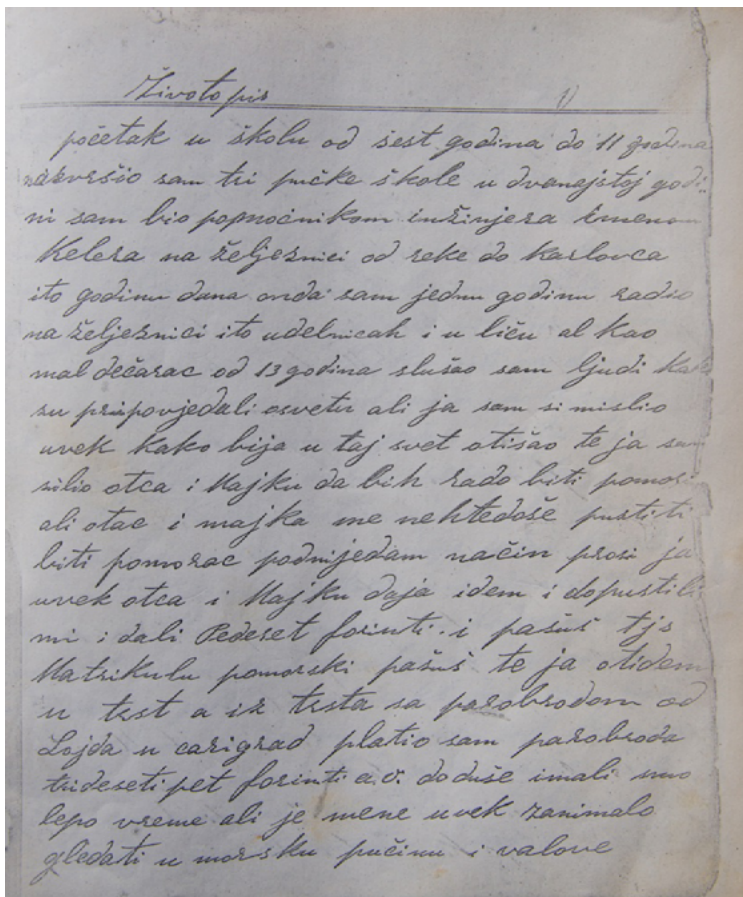 Životopis 1)
početak u školu od šest godina do 11 godina
nazvršio sam tri pučke škole u dvanajstoj godi
ni sam bio popmoćnikom inžinjera imenom
Kelera na željeznici od reke do Karlovca
ito godinu dana onda sam jednu godinu radio
na željeznici ito udelnicah i u liču al kao
mal dečarac od 13 godina slušao sam ljudi kak
su pripovjedali osvetu ali ja sam si mislio
uvek kako bija u taj svet otišao te ja sam
silio otca i Majku da bih rado biti pomor
ali otac i majka me nehtedoše pustiti
biti pomorac podnijedam način prosi ja
uvek otca i Majku daja idem i dopustili
mi i dali Pedeset forinti i pašuš tjs
Matrikulu pomorski pašuš te ja otidem
u trst a iz trsta sa parobrodom od
Lojda u carigrad platio sam parobroda
trideseti pet forinti a.v. doduše imali smo
lepo vreme ali je mene uvek zanimalo
gledati u morsku pučinu i valove